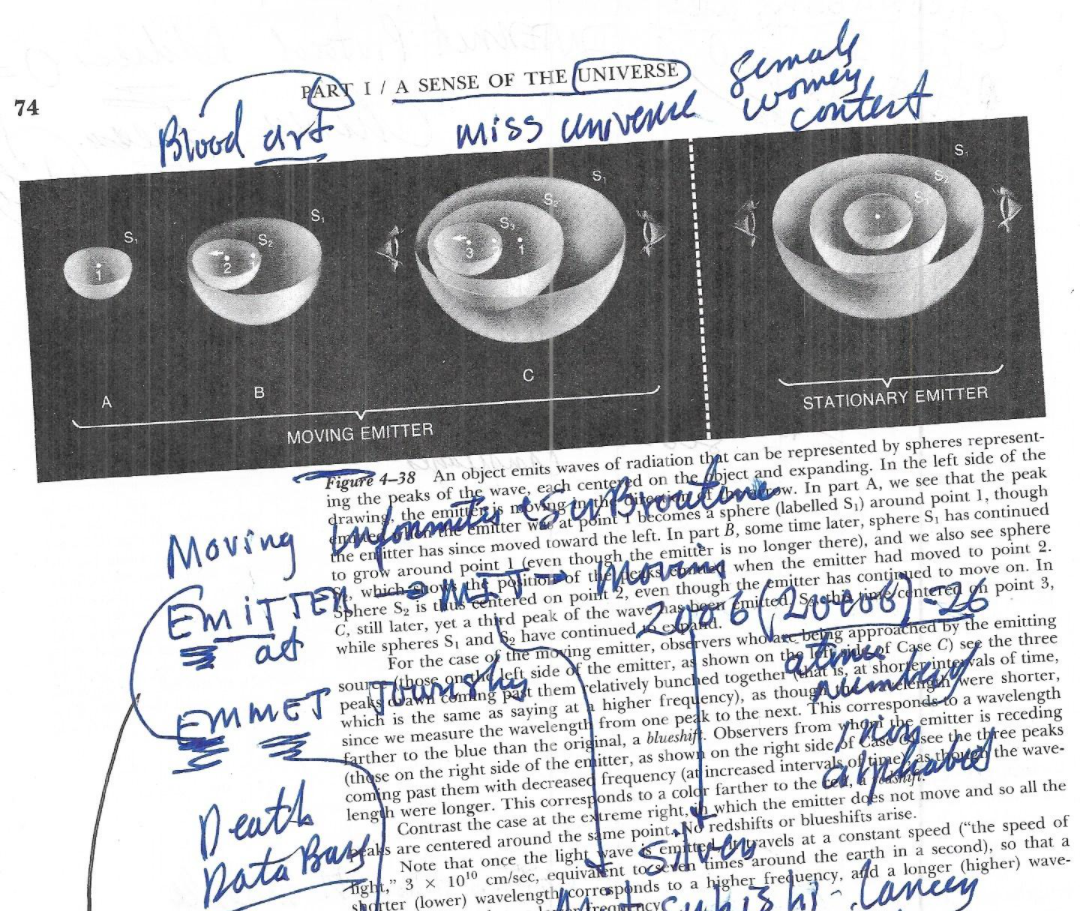 74
PART I / A SENSE OF THE UNIVERSE
female
women
contest
Blood art
miss universe
S₁
1
A
S₁
S₂
2
B
S₁
S₂
S₃
3
1
C
MOVING EMITTER
S₁
S₂
STATIONARY EMITTER
Figure 4–38 An object emits waves of radiation that can be represented by spheres represent-
ing the peaks of the wave, each centered on the object and expanding. In the left side of the
drawing, the emitter is moving in the direction of the arrow. In part A, we see that the peak
emitted when the emitter was at point 1 becomes a sphere (labelled S₁) around point 1, though
the emitter has since moved toward the left. In part B, some time later, sphere S₁ has continued
to grow around point 1 (even though the emitter is no longer there), and we also see sphere
S₂, which shows the position of the peaks emitted when the emitter had moved to point 2.
Sphere S₂ is thus centered on point 2, even though the emitter has continued to move on. In
C, still later, yet a third peak of the wave has been emitted, S₃, this time centered on point 3,
while spheres S₁ and S₂ have continued to expand.
Moving
EMITTER → MIT → Moving
at
2906 (20006) = 26
EMMET Township
atomic
number
iron
alphabet
For the case of the moving emitter, observers who are being approached by the emitting
source (those on the left side of the emitter, as shown on the left side of Case C) see the three
peaks drawn coming past them relatively bunched together (that is, at shorter intervals of time,
which is the same as saying at a higher frequency), as though the wavelength were shorter,
since we measure the wavelength from one peak to the next. This corresponds to a wavelength
farther to the blue than the original, a blueshift. Observers from whom the emitter is receding
(those on the right side of the emitter, as shown on the right side of Case C) see the three peaks
coming past them with decreased frequency (at increased intervals of time), as though the wave-
length were longer. This corresponds to a color farther to the red, a redshift.
Contrast the case at the extreme right, in which the emitter does not move and so all the
peaks are centered around the same point. No redshifts or blueshifts arise.
Note that once the light wave is emitted, it travels at a constant speed (“the speed of
light,” 3 × 10¹⁰ cm/sec, equivalent to seven times around the earth in a second), so that a
shorter (lower) wavelength corresponds to a higher frequency, and a longer (higher) wave-
frequency
Death
Data Bas
silver
Mitsubishi - Lancer